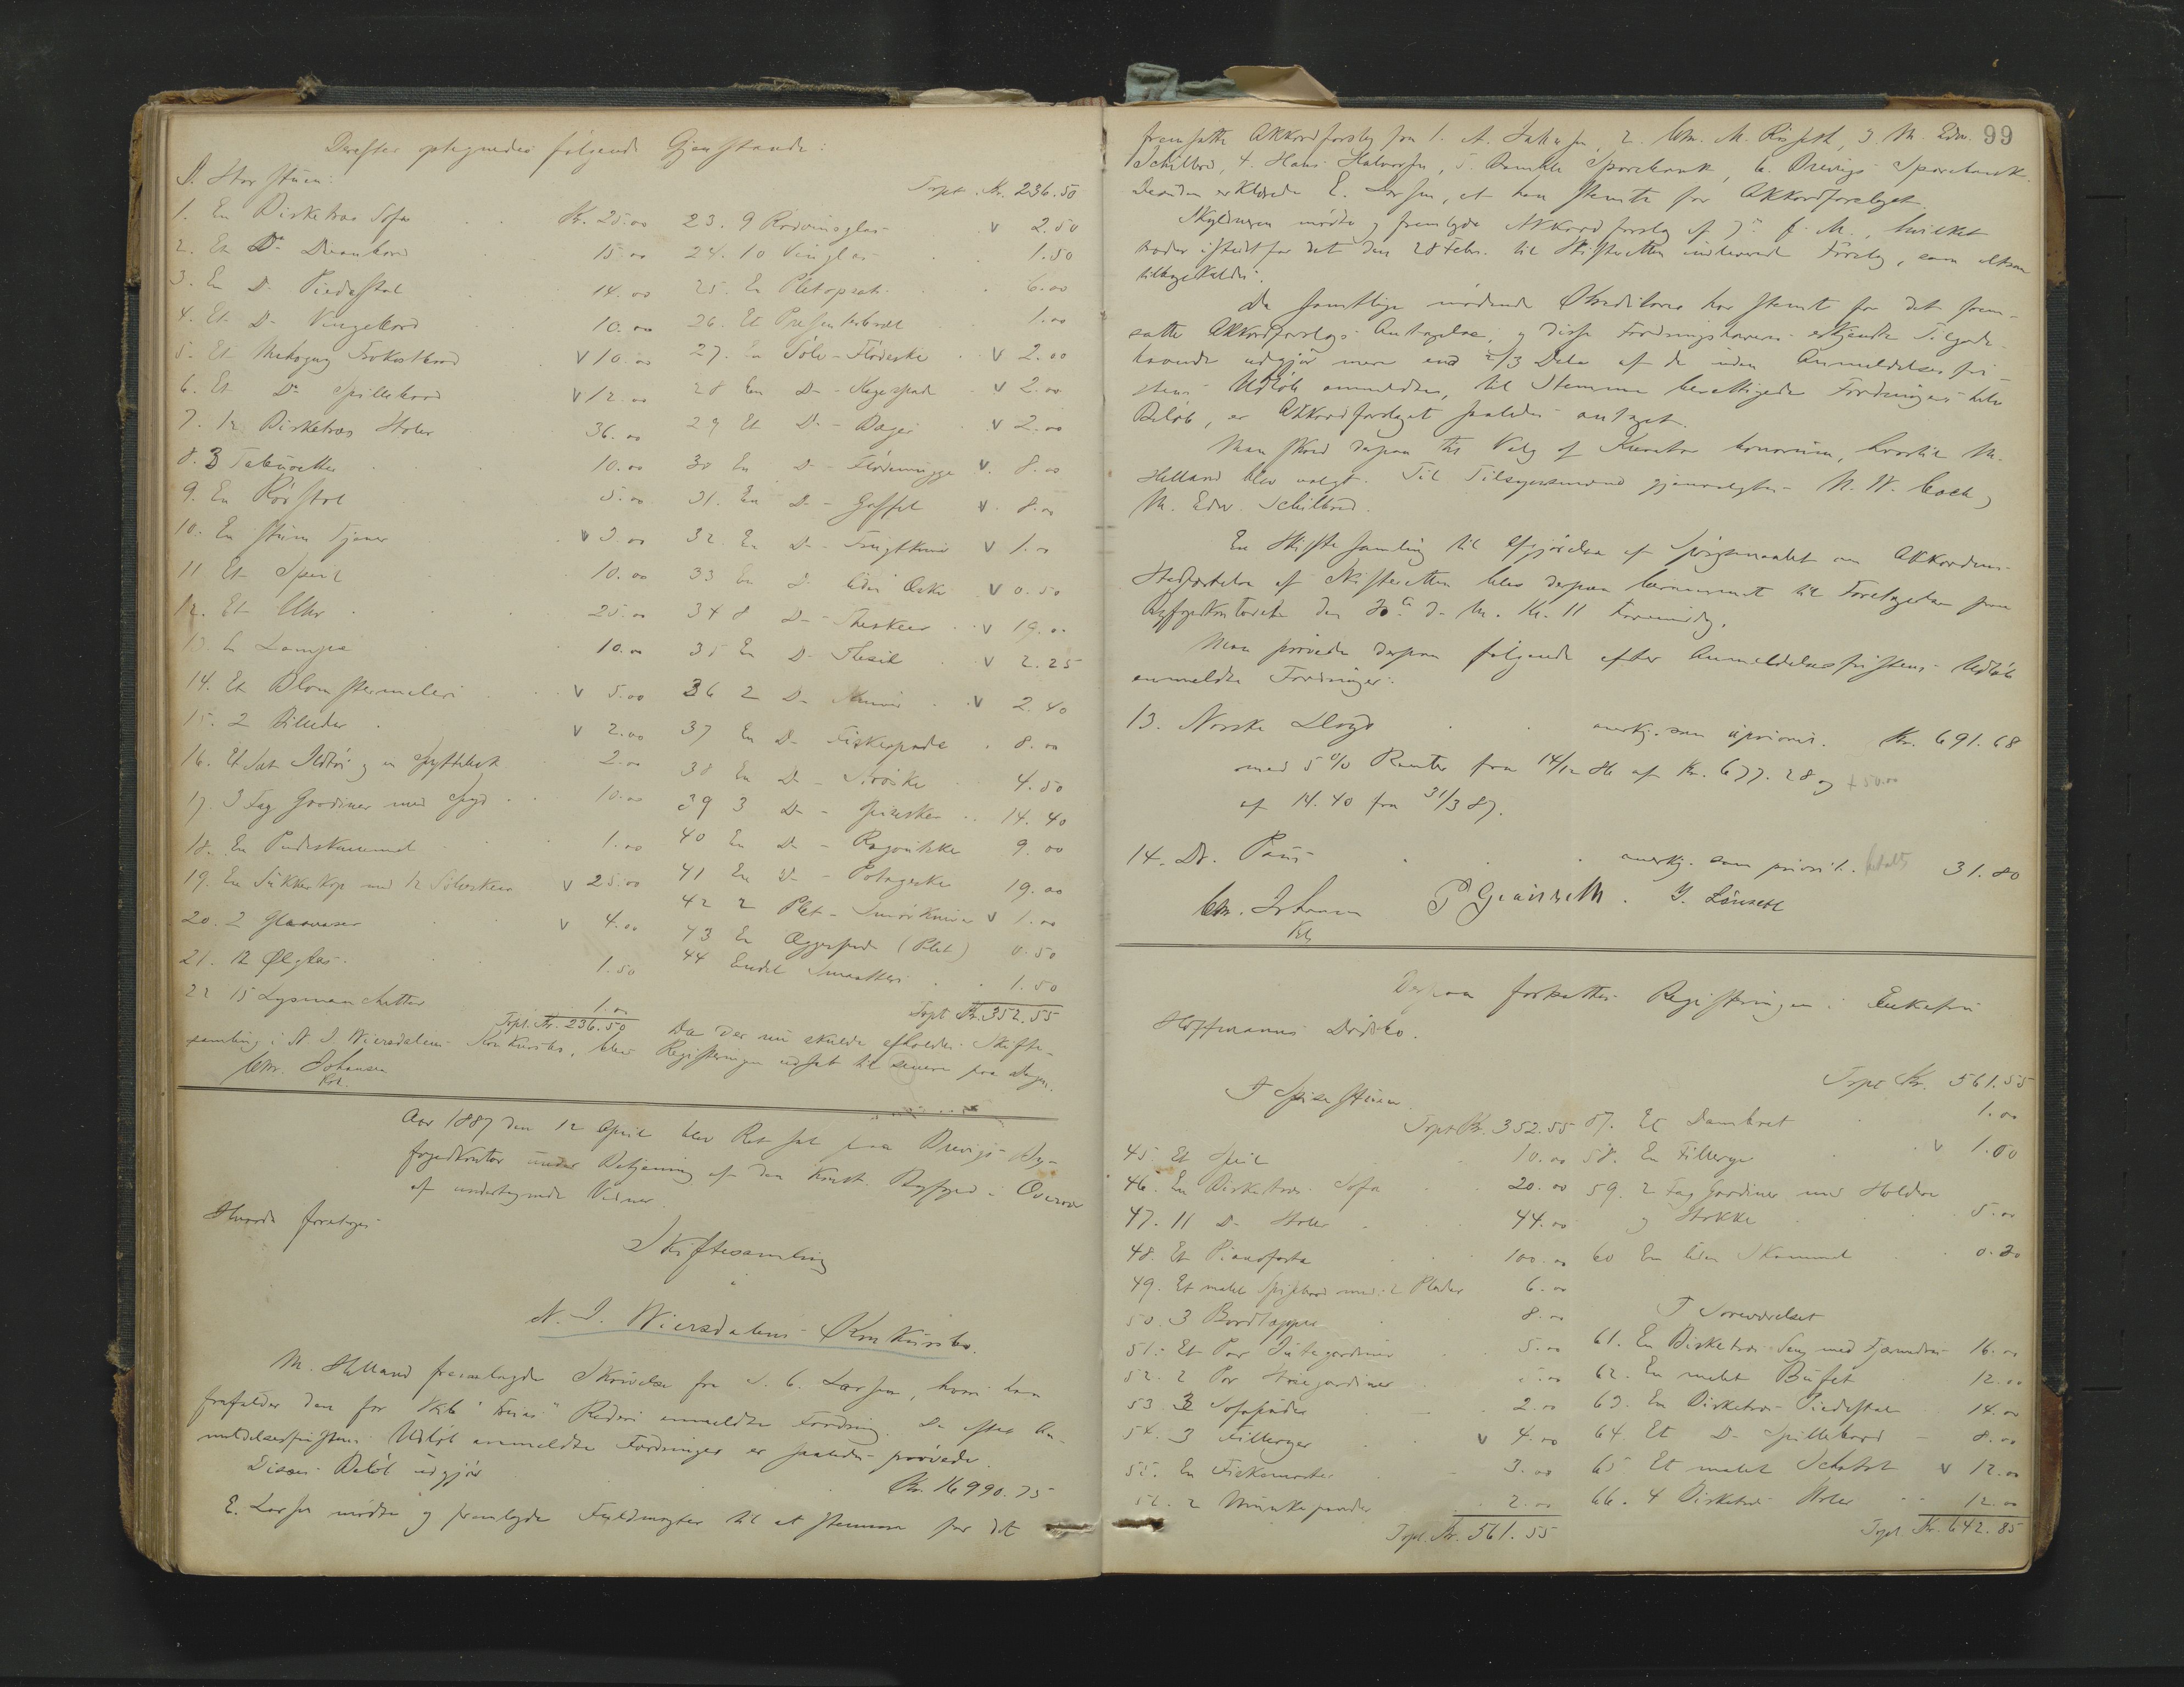 Derefter optegnedes følgende Gjenstande:
I Storstuen:
1. En Birketræs Sofa Kr. 25.00
2. Et Do Divanbord 15.00
3. En Do Piedestal 14.00
4. Et Do Vingebord 10.00
5. Et Mahogny Frokostbord v 10.00
6. Et Do Spillebord v 12.00
7. 12 Birketræs Stoler 36.00
8. 3 Tabouretter 10.00
9. En Rørstol 5.00
10. En stum Tjener v 3.00
11 Et Speil 10.00
12. Et Uhr 25.00
13. En Lampe 10.00
14. Et Blomstermaleri v 5.00
15. 2 Billeder v 2.00
16. Et Sæt Ildtøi og en Spyttebak 2.00
17. 3 Fag Gardiner med 10.00
18. En Pudeskammel 1.00
19. En Sukkerkop med 12 Sølvskeer v 25.00
20. 2 Glasvaser v 4.00
21. 12 Ølglas 1.50
22 15 Lysmanchetter 1.00
Trpt. Kr. 236.50
Trpt. Kr. 236.50
23. 9 Rødvinsglas v 2.50
24. 10 Vinglas 1.50
25. En Pletopsats 6.00
26. Et Presenterbret 1.00
27. En Sølv-Flødeske v 2.00
28 En Do - Kagespade v 2.00
29 Et Do - Bæger v 2.00
30 En Do - Flødemugge v. 8.00
31. En Do - Gaffel v. 8.00
32. En Do - Frugtkniv v 1.00
33 En Do liden Æske v 0.50
34 8 Do - Theskeer v 19.00
35 En Do Thesil v 2.25
36 2 Do v 2.40
37 En Do Fiskespade 8.00
38 En Do - Strøske 4.50
39 3 Do - Spiseskeer 14.40
40 En Do - Ragoutske 9.00
41 En Do - Potageske 19.00
42 2 Plet - Smørknive v 1.00
43 En Æggespade (Plet) 0.50
44 Endel Smaatteri 1.50
Trpt Kr. 352.55
Da der nu skulde afholdes Skifte-
samling i N. J. Wiersdalens Konkursbo, blev Registreringen udsat til senere paa Dagen.
Chr. Johansen
Kst.
Aar 1887 den 12 April blev Ret sat paa Brevigs By-
fogedkontor under Betjening af den konst. Byfoged i Overvær
af undertegnede Vidner
Hvorda foretoges
Skiftesamling
i
N. J. Wiersdalens Konkursbo.
M. Helland fremlagde Skrivelse fra S. C. Larsen, hvori han
frafalder den for Skib "" Rederi anmeldte Fordring. De efter An-
meldelsesfristens Udløb anmeldte Fordringer er saaledes prøvede.
Disses Beløb udgjør Kr. 16990.75
E. Larsen mødte og fremlagde Fuldmagter til at stemme for det
99
fremsatte Akkordforslag fra 1. A. 2. Chr. M. 3. M. Edv.
Schilbred, 4. Hans Halvorsen, 5. Bamble Sparebank, 6. Brevigs Sparebank.
Desuden erklærede E. Larsen, at han stemte for Akkordforslaget.
Skyldneren mødte og fremlagde Akkordforslag af f. M., hvilket
træder istedetfor det den 28 Febr. til Skifteretten indleverede Forslag, som altsaa
tilbagekaldes.
Da samtlige mødende Kreditorer har stemt for det frem-
satte Akkordforslags Antagelse, og disse Fordringshaveres erkjendte Tilgode-
havende udgjør mere end 2/3 Dele af de inden Anmeldelsesfri-
stens Udløb anmeldte, til Stemme berettigede Fordringers hele
Beløb, er Akkordforslaget saaledes antaget.
Man skred derpaa til Valg af Kurator bonorum, hvortil M.
Helland blev valgt. Til Tilsynsmænd gjenvalgtes N. W. Cock og
M. Edv. Schilbred.
En Skiftesamling til Afgjørelse af Spørgsmaalet om Akkordens
Stadfæstelse af Skifteretten blev derpaa berammet til Foretagelse paa
Byfogedkontoret den 30te d. M. Kl. 11 Formiddag.
Man prøvede derpaa følgende efter Anmeldelsesfristens Udløb
anmeldte Fordringer:
13. Norske Lloyd anerkj. som uprivil. Kr. 691.68
med 5% Renter fra 14/12 86 af Kr. 677.28 og + 50.00
af 14.40 fra 31/3 87.
14. Dr. Paus anerkj. som privil. betalt 31.80
Chr. Johansen
Kst
Derpaa fortsattes Registreringen i Enkefru
Hoffmanns Dødsbo.
I Spisestuen
Trpt Kr. 352.55
45. Et Speil 10.00
46. En Birketræs Sofa 20.00
47. 11 Do Stoler 44.00
48. Et Pianoforte 100.00
49. Et malet Spisebord med 2 Plader 6.00
50. 3 Bordtæpper 8.00
51. Et Par Jutegardiner 5.00
52. 2 Par gardiner
53. 3 Sofapuder 2.00
54. 3 Filleryer v 4.00
55. En 3.00
56. 2 2.00
Trpt. Kr. 561.55
Trpt Kr. 561.55
57. Et Dambret 1.00
58. En Fillerye v 1.00
59. 2 Fag Gardiner med Holdere
og Stokke 5.00
60 En liden Skammel 0.30
I Soveværelset
61. En Birketræs Seng med Fjærmadras 16.00
62. En malet Bufet 12.00
63. En Birketræs Piedestal 14.00
64. Et Do Spillebord 8.00
65 Et malet Schatol v 12.00
66. 4 Birketræs Stoler 12.00
Trpt. Kr. 642.85